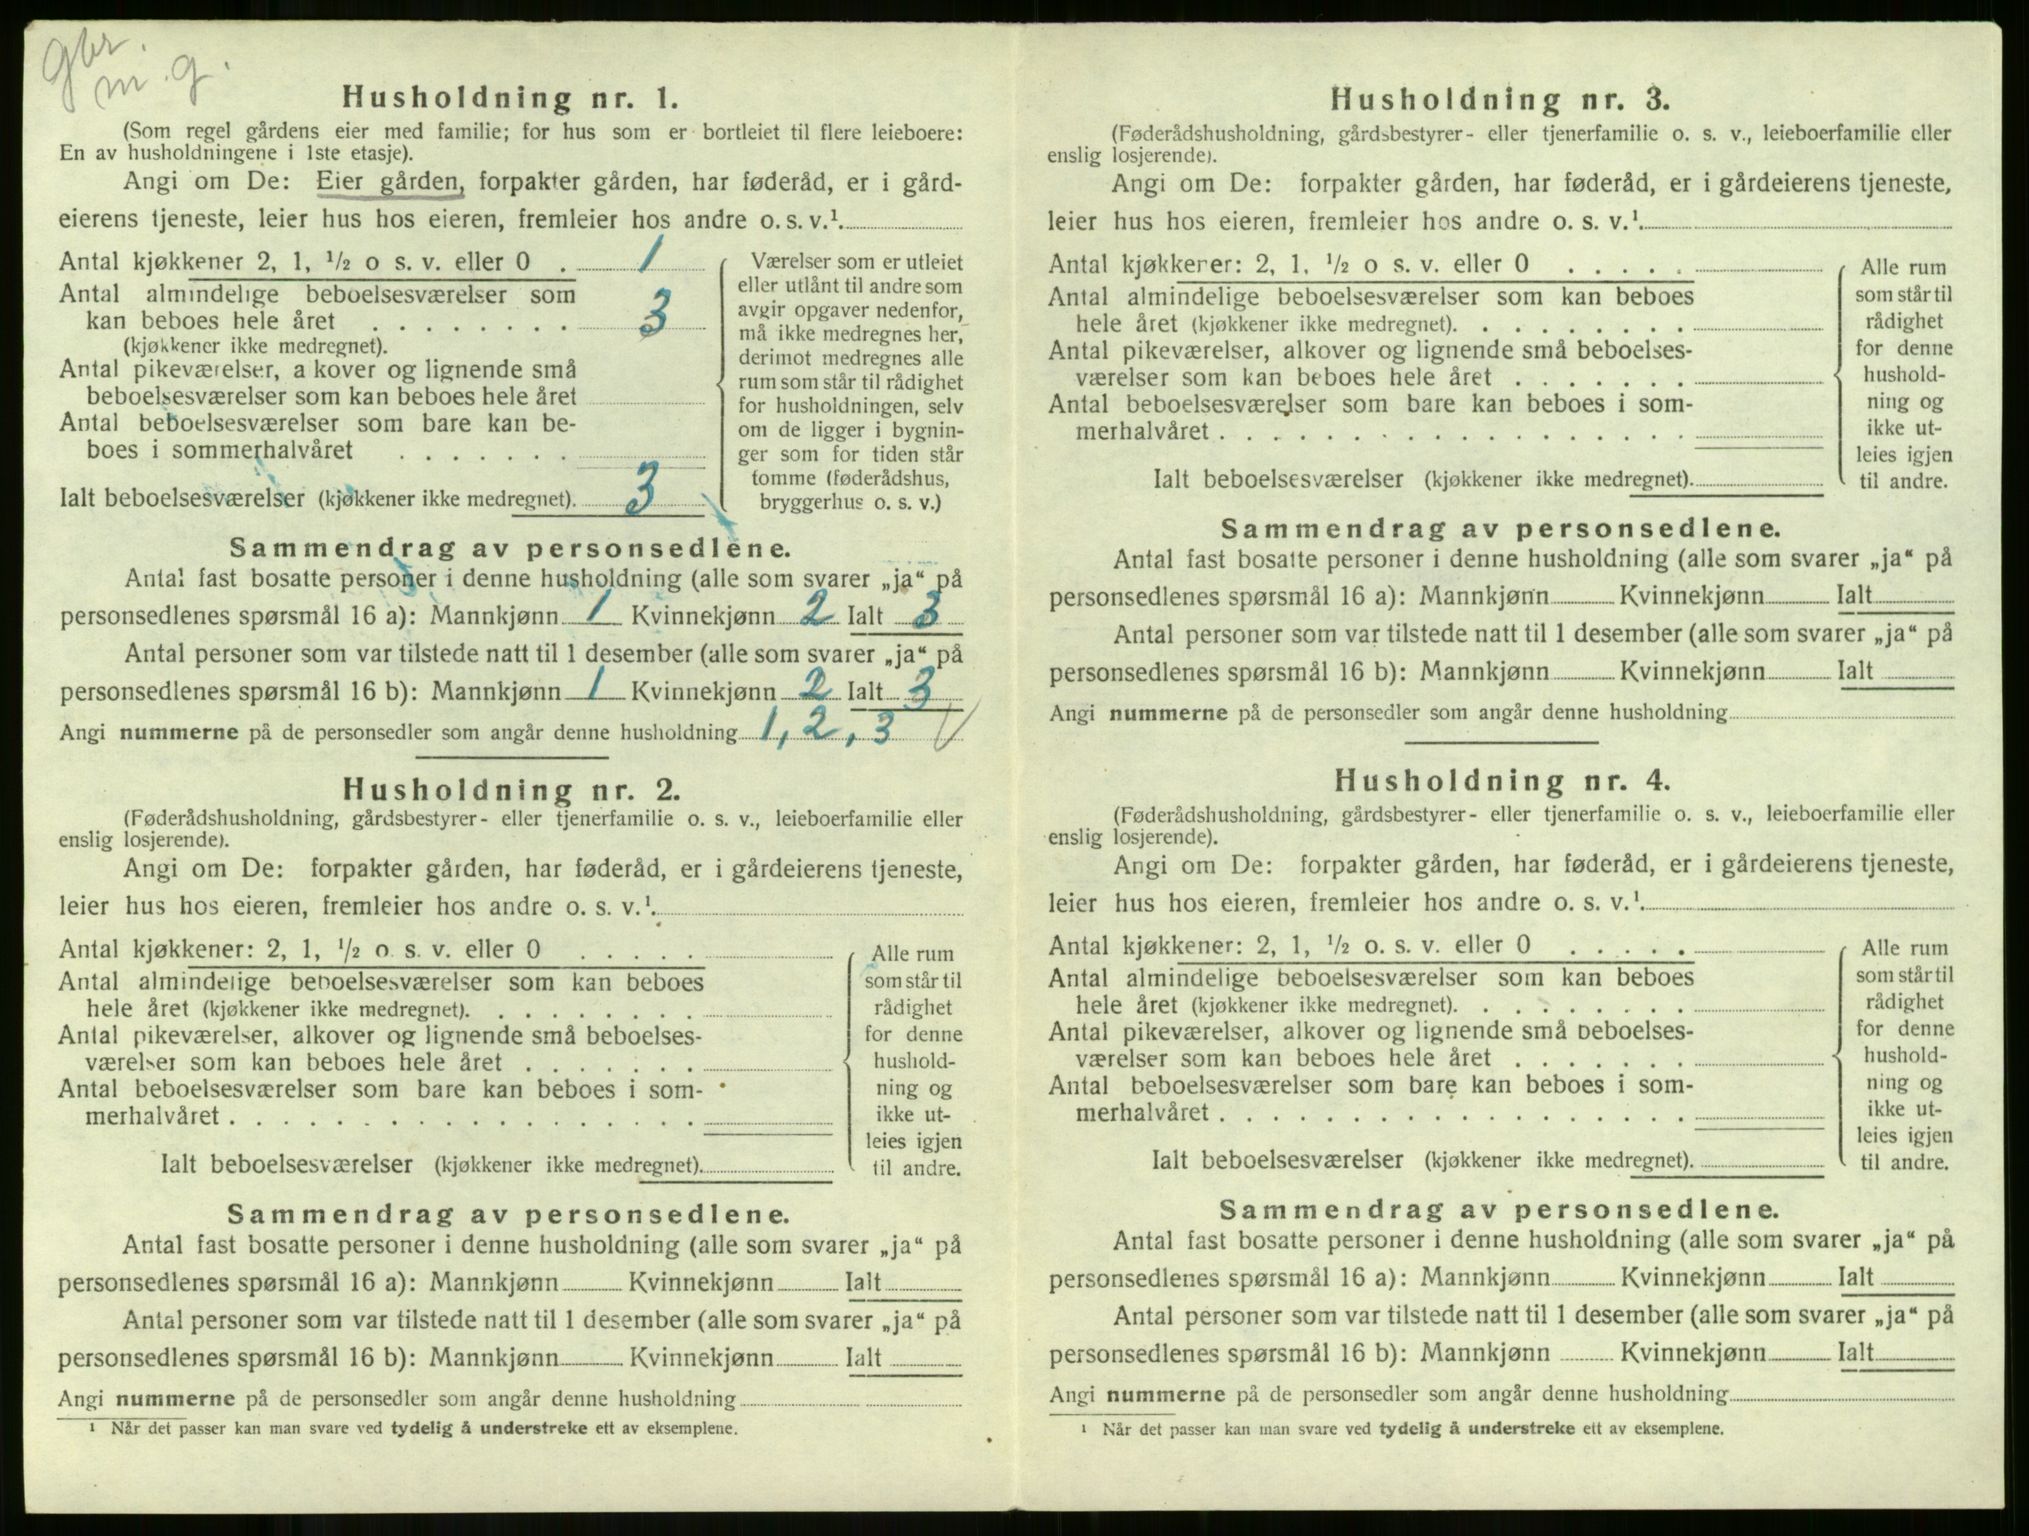 gbr.
m. g.
Husholdning nr. 1.
(Som regel gårdens eier med familie; for hus som er bortleiet til flere leieboere:
En av husholdningene i 1ste etasje).
Angi om De: Eier gården, forpakter gården, har føderåd, er i gård-
eierens tjeneste, leier hus hos eieren, fremleier hos andre o. s. v.¹
Antal kjøkkener 2, 1, ½ o s. v. eller 0 . 1
Antal almindelige beboelsesværelser som
kan beboes hele året . . . . . . . . 3
(kjøkkener ikke medregnet).
Antal pikeværelser, a kover og lignende små
beboelsesværelser som kan beboes hele året
Antal beboelsesværelser som bare kan be-
boes i sommerhalvåret . . . . . . .
Ialt beboelsesværelser (kjøkkener ikke medregnet). 3
Værelser som er utleiet
eller utlånt til andre som
avgir opgaver nedenfor,
må ikke medregnes her,
derimot medregnes alle
rum som står til rådighet
for husholdningen, selv
om de ligger i bygnin-
ger som for tiden står
tomme (føderådshus,
bryggerhus o. s. v.)
Sammendrag av personsedlene.
Antal fast bosatte personer i denne husholdning (alle som svarer „ja“ på
personsedlenes spørsmål 16 a): Mannkjønn 1 Kvinnekjønn 2 Ialt 3
Antal personer som var tilstede natt til 1 desember (alle som svarer „ja“ på
personsedlenes spørsmål 16 b): Mannkjønn 1 Kvinnekjønn 2 Ialt 3
Angi nummerne på de personsedler som angår denne husholdning 1, 2, 3 √
Husholdning nr. 2.
(Føderådshusholdning, gårdsbestyrer- eller tjenerfamilie o. s. v., leieboerfamilie eller
enslig losjerende).
Angi om De: forpakter gården, har føderåd, er i gårdeierens tjeneste,
leier hus hos eieren, fremleier hos andre o. s. v.¹.
Antal kjøkkener: 2, 1, ½ o. s. v. eller 0 . . . . .
Antal almindelige beboelsesværelser som kan beboes
hele året (kjøkkener ikke medregnet). . . . . . . . .
Antal pikeværelser, alkover og lignende små beboelses-
værelser som kan beboes hele året . . . . . . .
Antal beboelsesværelser som bare kan beboes i som-
merhalvåret . . . . . . . . . . . . . . . . . .
Ialt beboelsesværelser (kjøkkener ikke medregnet).
Alle rum
som står til
rådighet
for denne
hushold-
ning og
ikke ut-
leies igjen
til andre.
Sammendrag av personsedlene.
Antal fast bosatte personer i denne husholdning (alle som svarer „ja“ på
personsedlenes spørsmål 16 a): Mannkjønn Kvinnekjønn Ialt
Antal personer som var tilstede natt til 1 desember (alle som svarer „ja“ på
personsedlenes spørsmål 16 b): Mannkjønn Kvinnekjønn Ialt
Angi nummerne på de personsedler som angår denne husholdning
¹ Når det passer kan man svare ved tydelig å understreke ett av eksemplene.
Husholdning nr. 3.
(Føderådshusholdning, gårdsbestyrer- eller tjenerfamilie o. s. v., leieboerfamilie eller
enslig losjerende).
Angi om De: forpakter gården, har føderåd, er i gårdeierens tjeneste,
leier hus hos eieren, fremleier hos andre o. s. v.¹.
Antal kjøkkener: 2, 1, ½ o s. v. eller 0 . . . . .
Antal almindelige beboelsesværelser som kan beboes
hele året (kjøkkener ikke medregnet). . . . . . . . .
Antal pikeværelser, alkover og lignende små beboelses-
værelser som kan beboes hele året . . . . . . .
Antal beboelsesværelser som bare kan beboes i som-
merhalvåret . . . . . . . . . . . . . . . . . .
Ialt beboelsesværelser (kjøkkener ikke medregnet).
Alle rum
som står til
rådighet
for denne
hushold-
ning og
ikke ut-
leies igjen
til andre.
Sammendrag av personsedlene.
Antal fast bosatte personer i denne husholdning (alle som svarer „ja“ på
personsedlenes spørsmål 16 a): Mannkjønn Kvinnekjønn Ialt
Antal personer som var tilstede natt til 1 desember (alle som svarer „ja“ på
personsedlenes spørsmål 16 b): Mannkjønn Kvinnekjønn Ialt
Angi nummerne på de personsedler som angår denne husholdning
Husholdning nr. 4.
(Føderådshusholdning, gårdsbestyrer- eller tjenerfamilie o. s. v., leieboerfamilie eller
enslig losjerende).
Angi om De: forpakter gården, har føderåd, er i gårdeierens tjeneste,
leier hus hos eieren, fremleier hos andre o. s. v.¹.
Antal kjøkkener: 2, 1, ½ o. s. v. eller 0 . . . . .
Antal almindelige beboelsesværelser som kan beboes
hele året (kjøkkener ikke medregnet). . . . . . . . .
Antal pikeværelser, alkover og lignende små beboelses-
værelser som kan beboes hele året . . . . . . .
Antal beboelsesværelser som bare kan beboes i som-
merhalvåret . . . . . . . . . . . . . . . . . .
Ialt beboelsesværelser (kjøkkener ikke medregnet).
Alle rum
som står til
rådighet
for denne
hushold-
ning og
ikke ut-
leies igjen
til andre.
Sammendrag av personsedlene.
Antal fast bosatte personer i denne husholdning (alle som svarer „ja“ på
personsedlenes spørsmål 16 a): Mannkjønn Kvinnekjønn Ialt
Antal personer som var tilstede natt til 1 desember (alle som svarer „ja“ på
personsedlenes spørsmål 16 b): Mannkjønn Kvinnekjønn Ialt
Angi nummerne på de personsedler som angår denne husholdning
¹ Når det passer kan man svare ved tydelig å understreke ett av eksemplene.